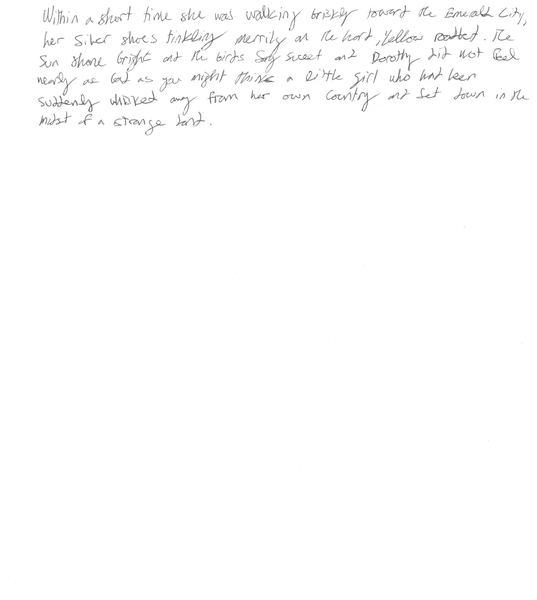 Within a short time she was walking briskly toward the Emerald City,
her Silver shoes tinkling merrily on the hard, Yellow roadbed. The
Sun shone bright and the birds Sang sweet and Dorothy did not feel
nearly as bad as you might think a little girl who had been
suddenly whisked away from her own Country and set down in the
midst of a strange land.